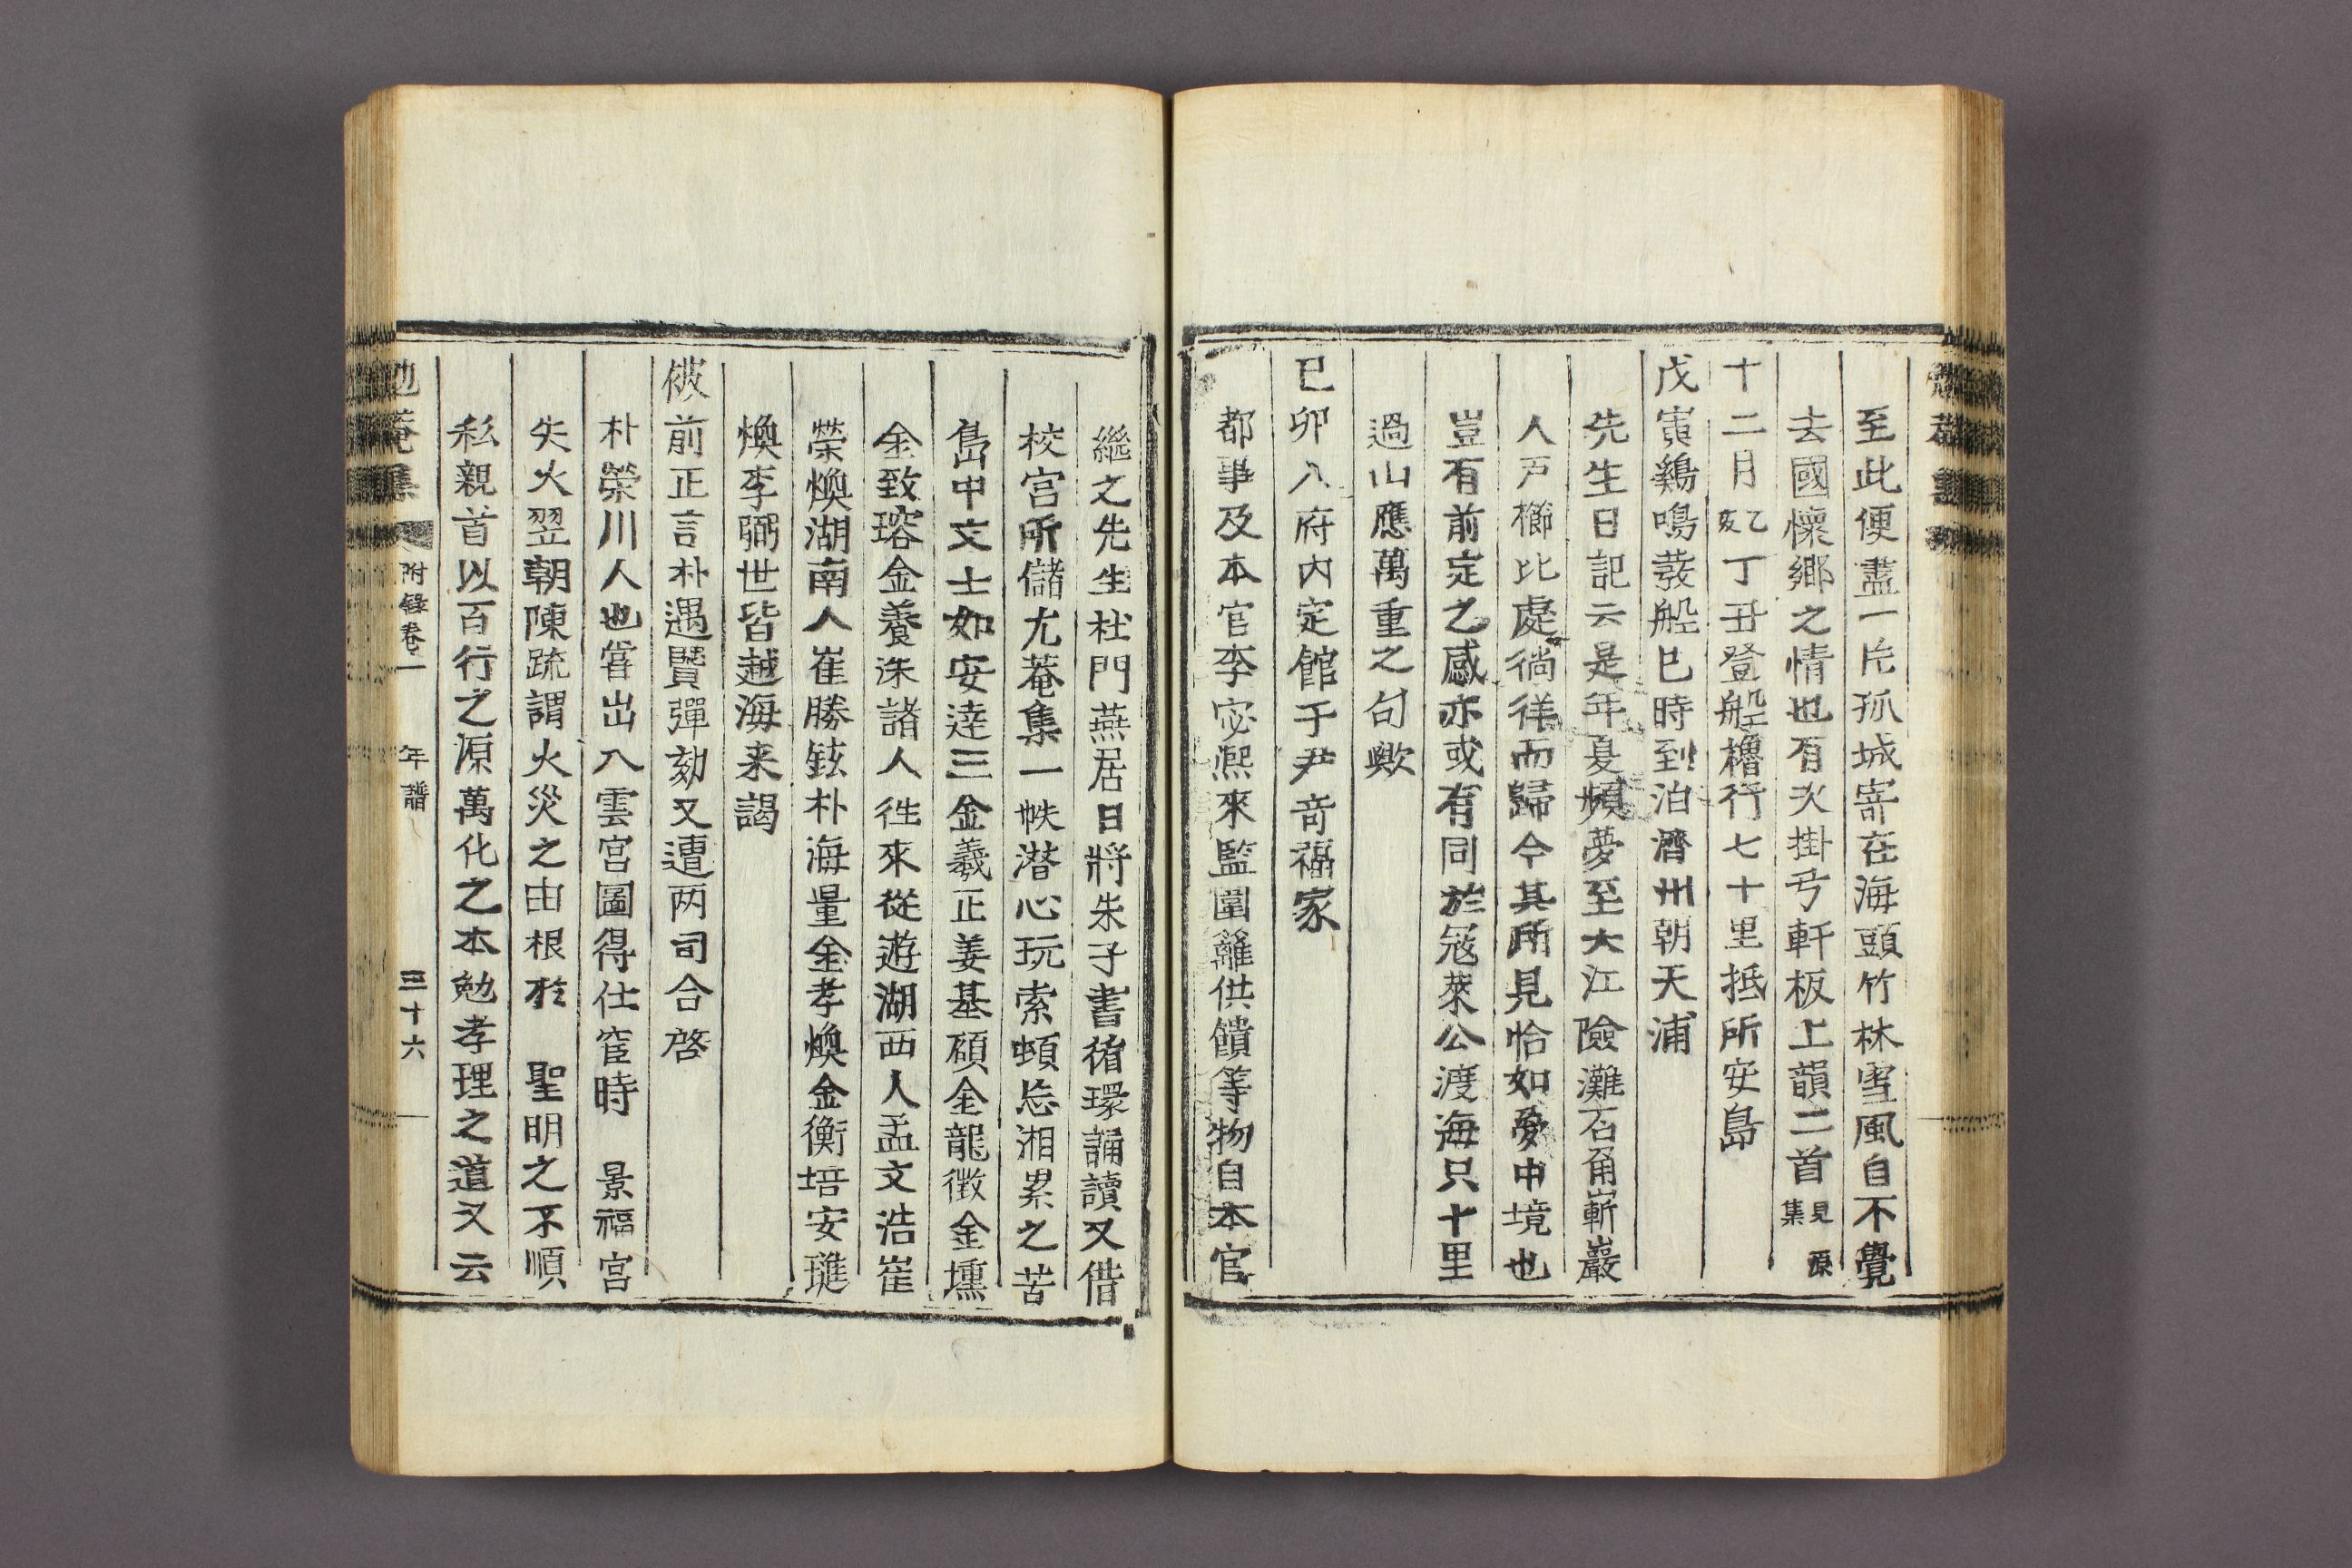 至此便盡一片孤城寄在海頭竹林雪風自不覺
去國懷鄉之情也有次掛弓軒板上韻二首見原集
十二月乙亥丁丑登船櫓行七十里抵所安島
戊寅鷄鳴發船巳時到泊濟州朝天浦
先生日記云是年夏頻夢至大江險灘石角嶄巖
人戶櫛比處徜徉而歸今其所見恰如夢中境也
豈有前定之感亦或有同於冦萊公渡海只十里
過山應萬重之句歟
己卯入府內定館于尹奇福家
都事及本官李宓熙來監圍籬供饋等物自本官
繼之先生杜門燕居日將朱子書循環誦讀又借
校宮所儲尤菴集一帙潜心玩索頓忘湘累之苦
島中文士如安達三金羲正姜基碩金龍徵金壎
金致瑢金養洙諸人徃來從遊湖西人孟文浩崔
榮煥湖南人崔勝鉉朴海量金孝煥金衡培安璡
煥李弼世皆越海来謁
被前正言朴遇賢彈劾又遭两司合啓
朴榮川人也甞出入雲宮圖得仕窅時　景福宮
失火翌朝陳疏謂火災之由根於　聖明之不順
私親首以百行之源萬化之本勉孝理之道又云
勉菴集　附錄卷一　年譜　三十六